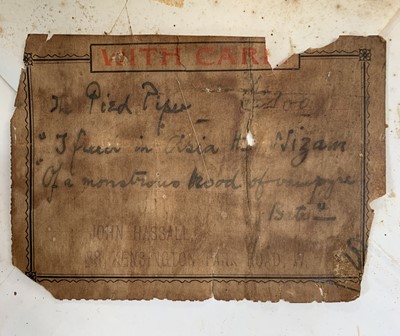 WITH CARE
The Pied Piper
"I in Asia the Nizam
Of a monstrous brood of vampyre
Bats"
JOHN HASSALL
88 KENSINGTON PARK ROAD, W